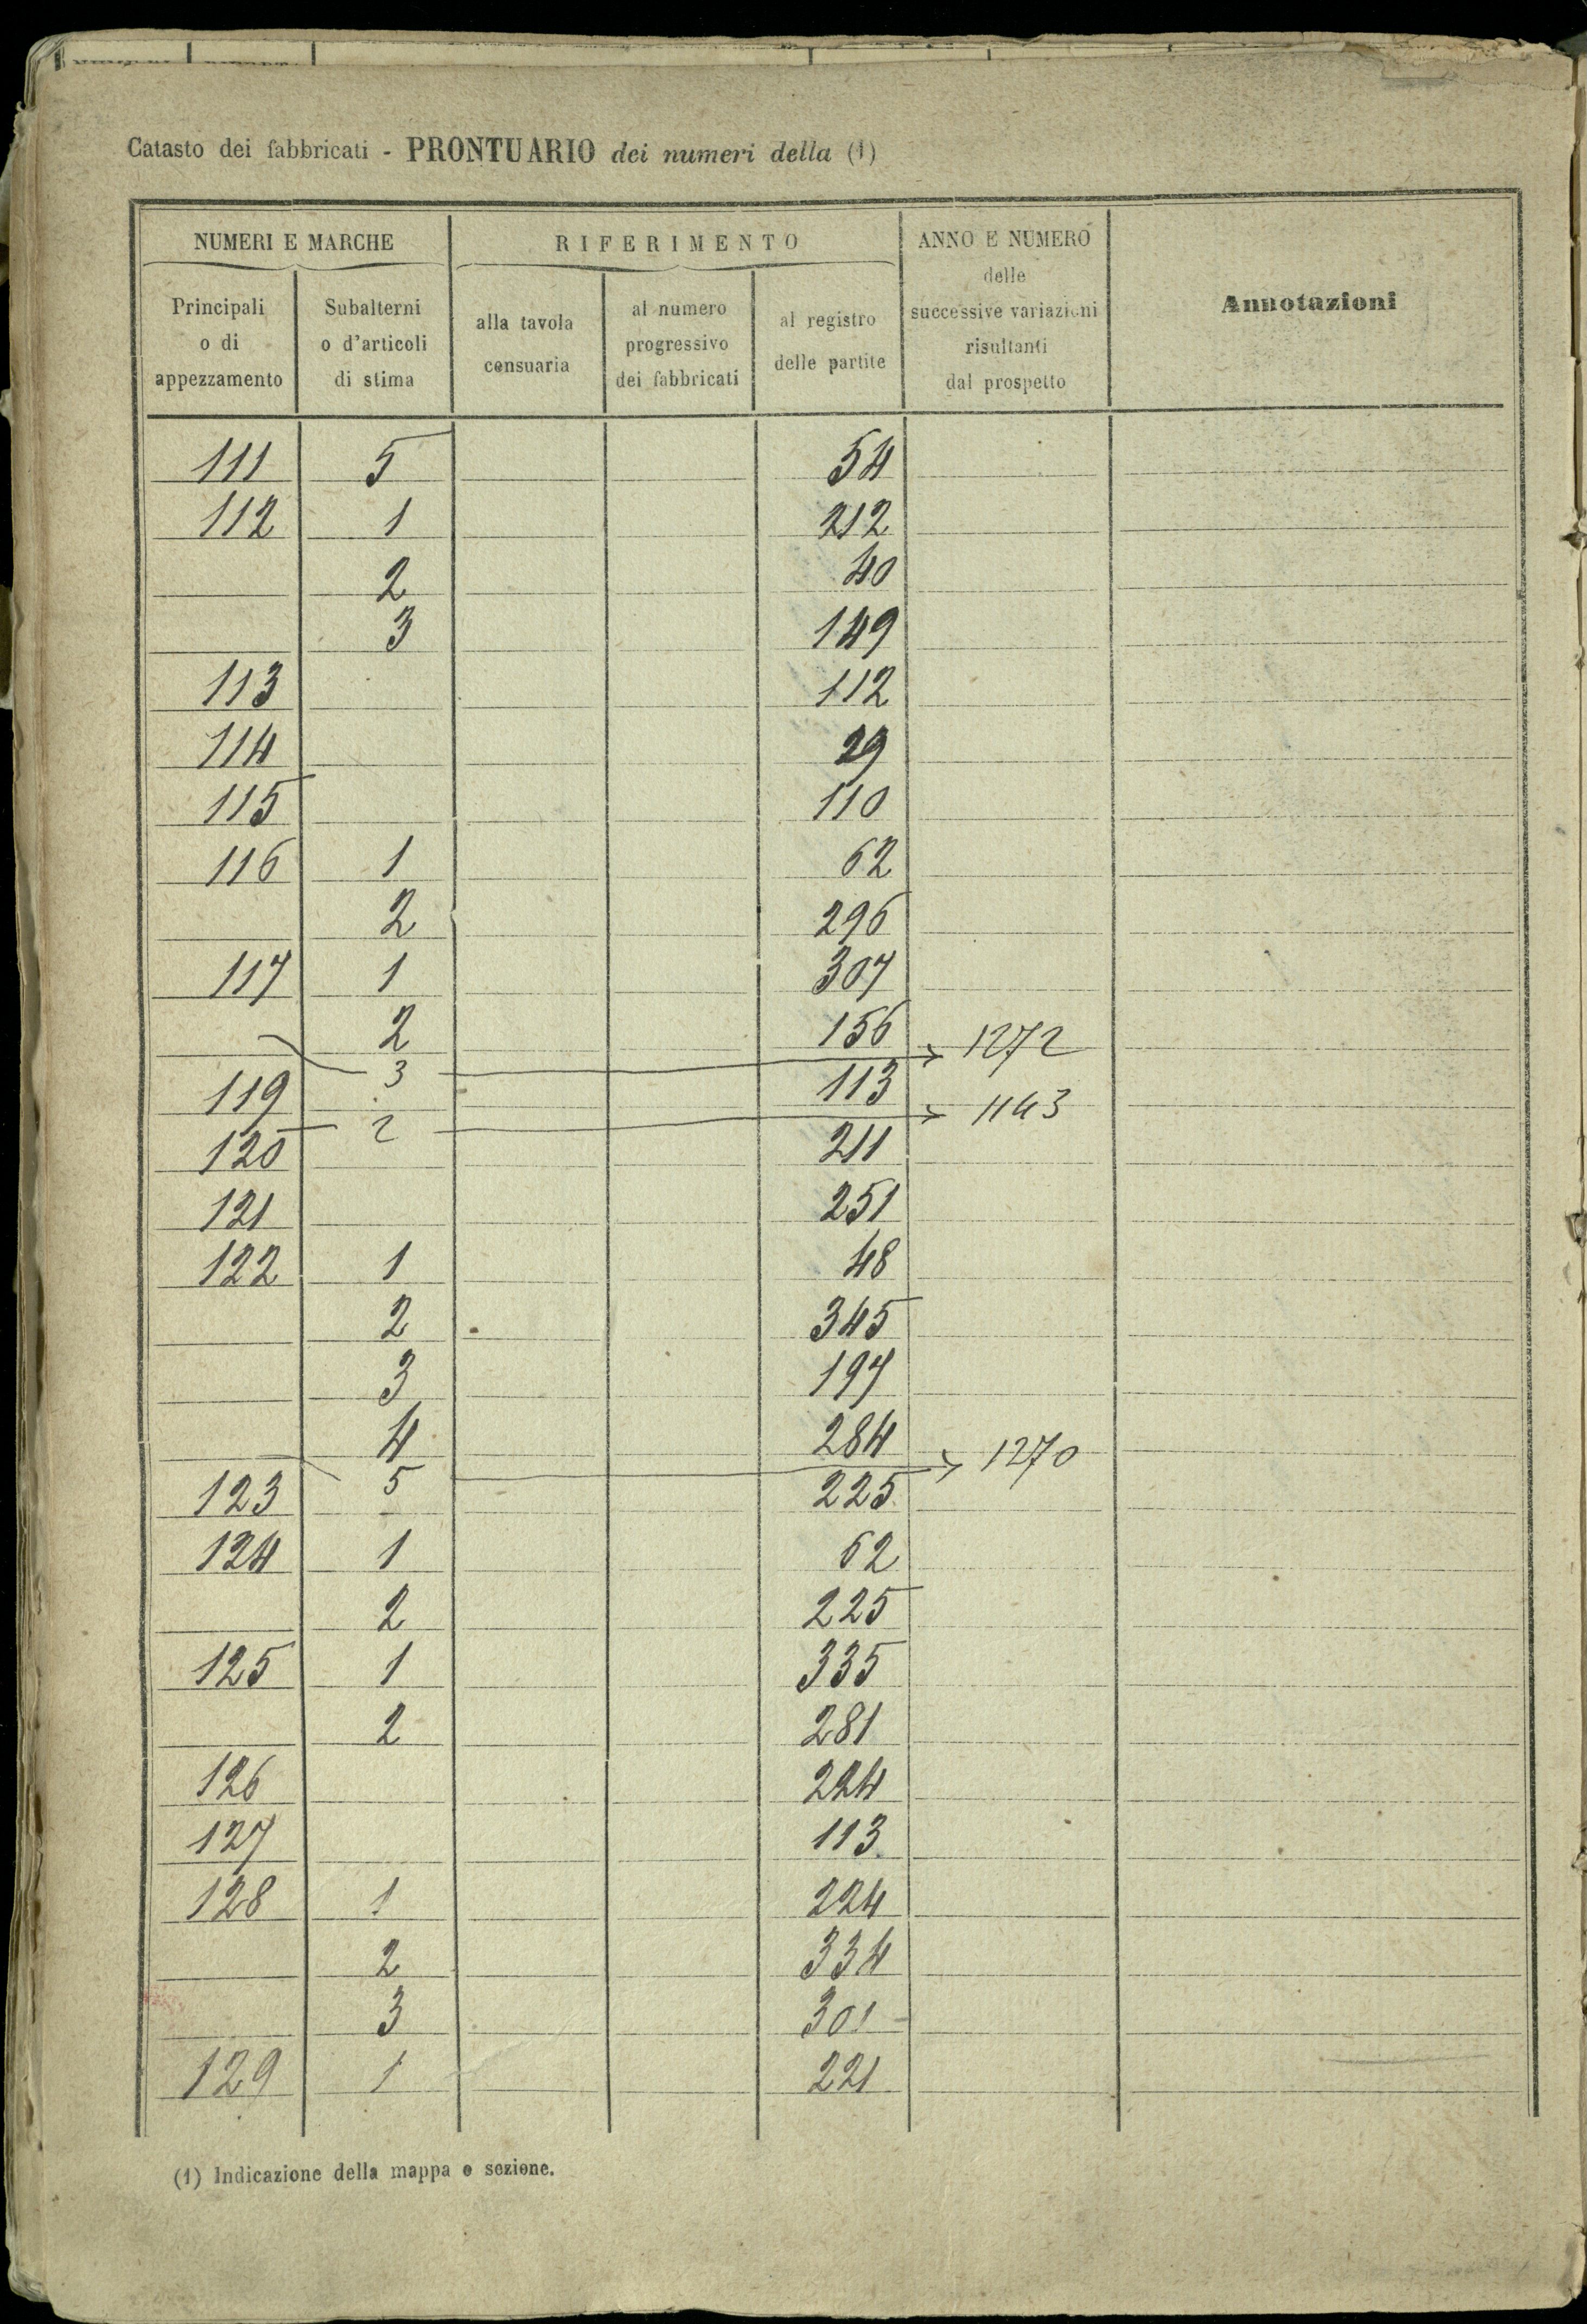 Catasto dei fabbricati - PRONTUARIO dei numeri della (1)
NUMERI E MARCHE RIFERIMENTO ANNO E NUMERO delle successive variazioni risultanti dal prospetto Annotazioni
Principali o di appezzamento Subalterni o d'articoli di stima alla tavola censuaria al numero progressivo dei fabbricati al registro delle partite
111 5 54
112 1 212
2 40
3 149
113 112
114 29
115 110
116 1 62
2 296
117 1 307
2 156
3 1272
119 113
2 1143
120 211
121 251
122 1 48
2 345
3 197
4 284
5 1270
123 225
124 1 62
2 225
125 1 335
2 281
126 224
127 113
128 1 224
2 334
3 301
129 1 221
(1) Indicazione della mappa o sezione.